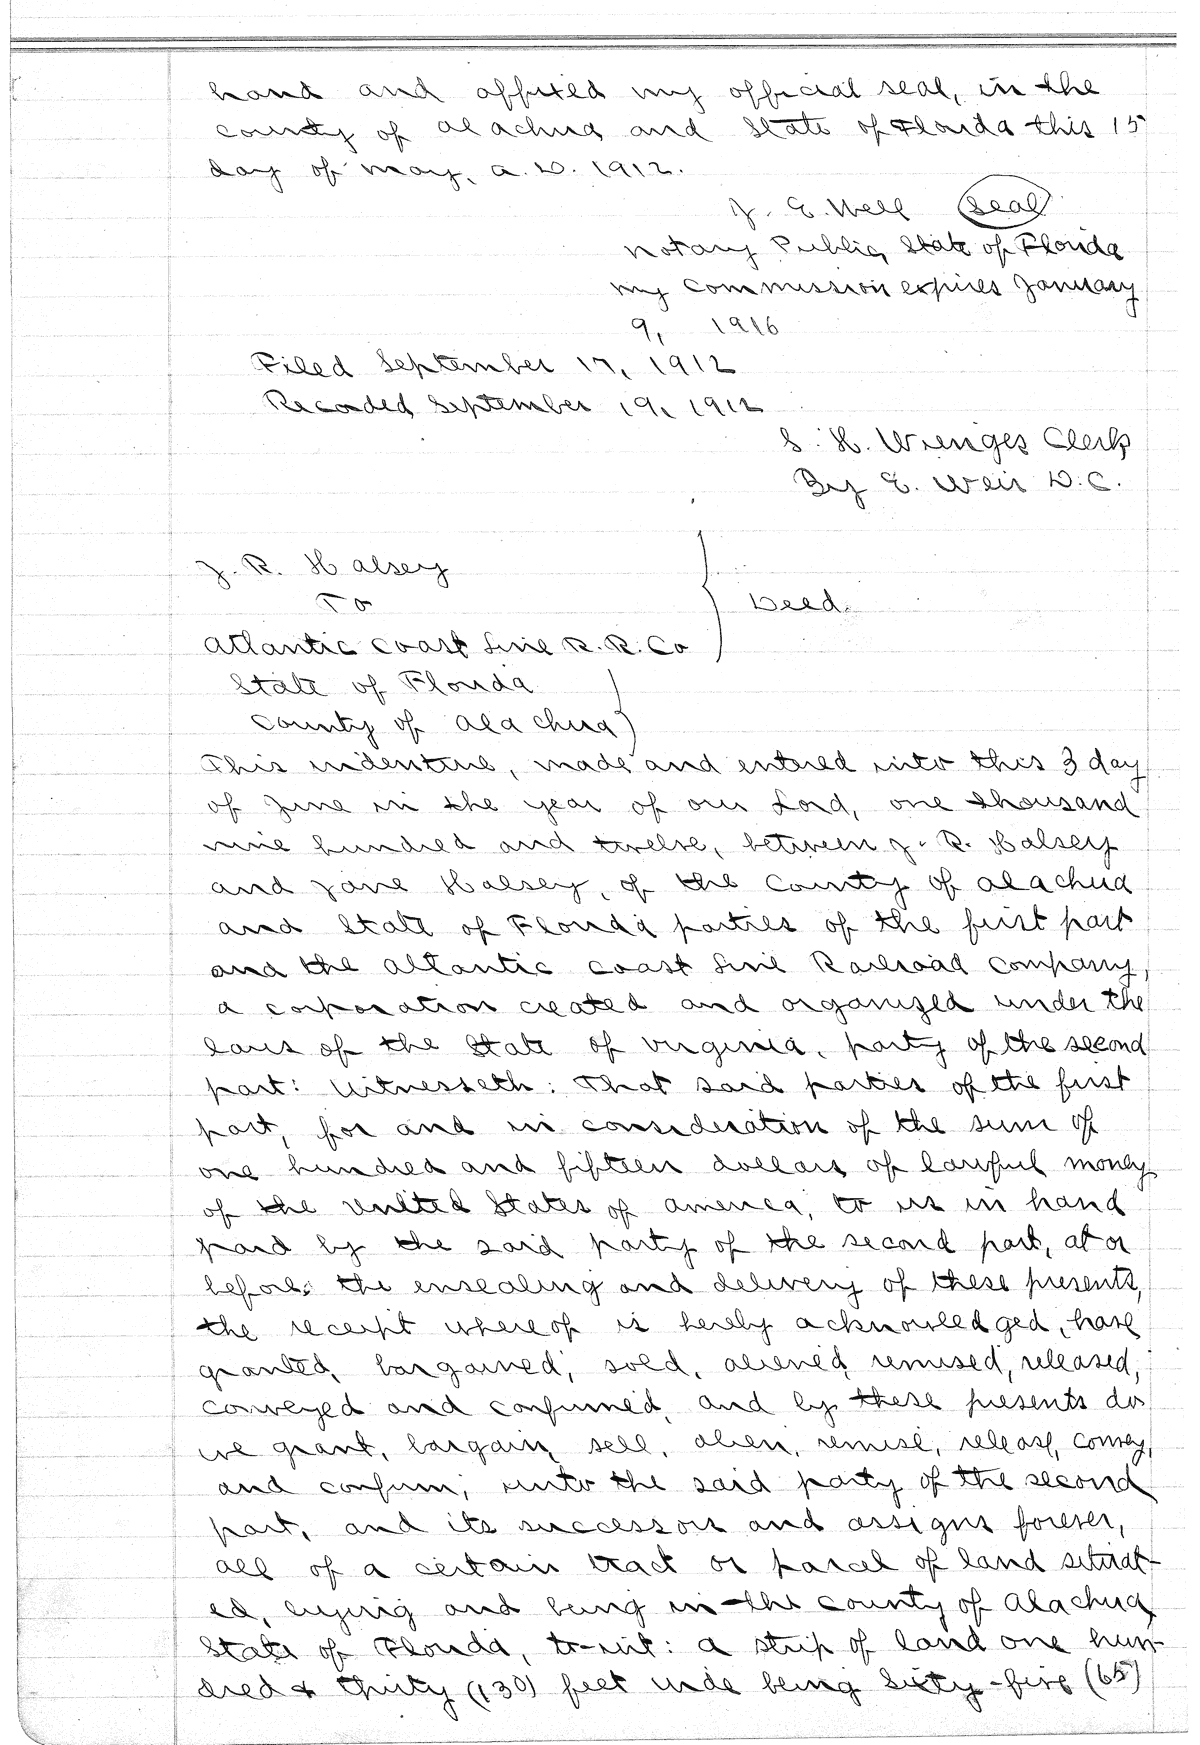 hand and affixed my official seal, in the
county of Alachua and State of Florida this 15
day of May, A.D. 1912.
J. E. Well (Seal)
Notary Public, State of Florida
my commission expires January
9, 1916
Filed September 17, 1912
Recorded September 19, 1912
S. H. Wienges Clerk
By E. Weir D.C.
J. R. Halsey
To
Deed.
Atlantic Coast Line R.R. Co
State of Florida
County of Alachua
This indenture, made and entered into this 3 day
of June in the year of our Lord, one thousand
nine hundred and twelve, between J. R. Halsey
and Jane Halsey, of the County of Alachua
and State of Florida parties of the first part
and the Atlantic Coast Line Railroad Company,
a corporation created and organized under the
laws of the State of Virginia, party of the second
part: Witnesseth: That said parties of the first
part, for and in consideration of the sum of
one hundred and fifteen dollars of lawful money
of the United States of America, to us in hand
paid by the said party of the second part, at or
before the ensealing and delivery of these presents,
the receipt whereof is hereby acknowledged, have
granted, bargained, sold, aliened, remised, released,
conveyed and confirmed, and by these presents do
we grant, bargain, sell, alien, remise, release, convey,
and confirm, unto the said party of the second
part, and its successors and assigns forever,
all of a certain tract or parcel of land situat-
ed, lying and being in the county of Alachua,
State of Florida, to-wit: A strip of land one hun-
dred & thirty (130) feet wide being Sixty-five (65)